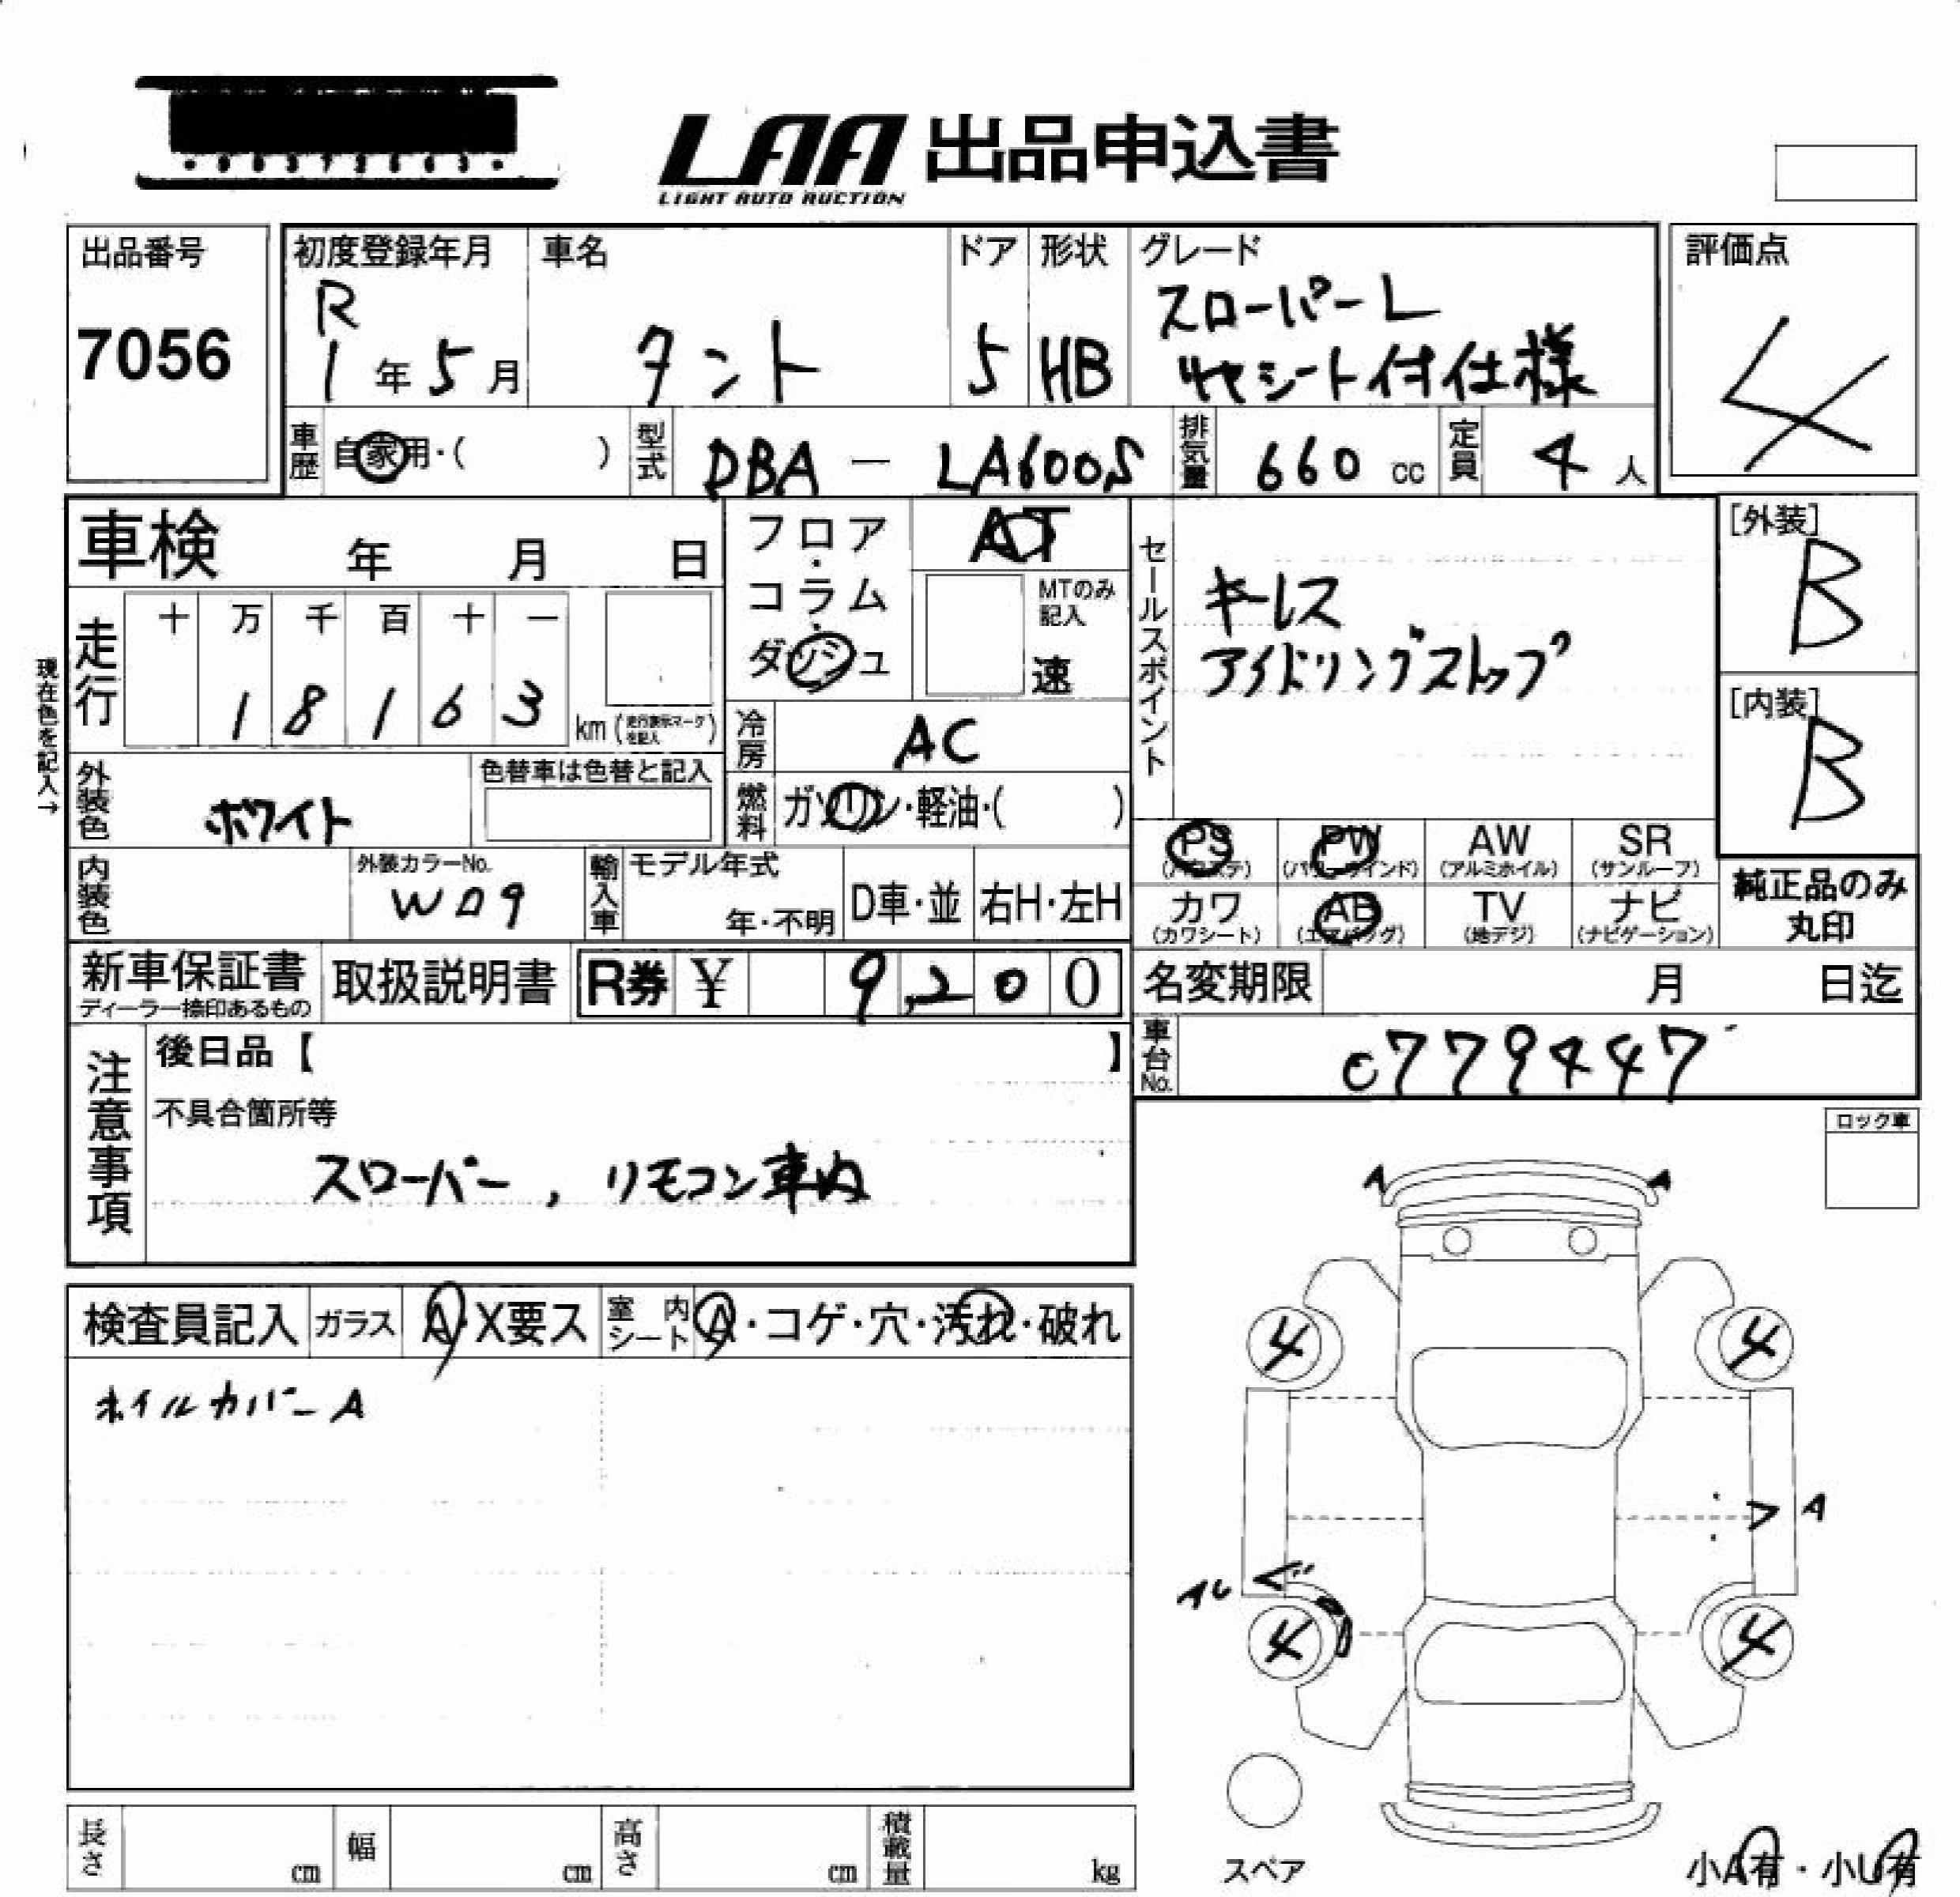 LAA 出品申込書
LIGHT AUTO AUCTION
出品番号
7056
初度登録年月
R
1 年 5 月
車名
タント
ドア
5
形状
HB
グレード
スローパーL
リヤシート付仕様
評価点
4
車歴 自家用・( )
型式 DBA - LA600S
排気量 660 cc
定員 4 人
車検 年 月 日
フロア・コラム・ダッシュ
AT
MTのみ記入
速
セールスポイント
キーレス
アイドリングストップ
[外装]
B
[内装]
B
現在色を記入→
走行
十 万 千 百 十 一
1 8 1 6 3 km (走行表示マークを記入)
冷房 AC
外装色 ホワイト
色替車は色替と記入
燃料 ガソリン・軽油・( )
PS (パワステ)
PW (パワーウインド)
AW (アルミホイル)
SR (サンルーフ)
内装色
外装カラーNo.
W09
輸入車
モデル年式
年・不明
D車・並
右H・左H
カワ (カワシート)
AB (エアバッグ)
TV (地デジ)
ナビ (ナビゲーション)
純正品のみ
丸印
新車保証書
ディーラー捺印あるもの
取扱説明書
R券 ¥ 9,200
名変期限 月 日迄
車台No. 0779447
注意事項
後日品【 】
不具合箇所等
スローパー, リモコン車内
ロック車
検査員記入 ガラス A・X要ス 室内シート A・コゲ・穴・汚れ・破れ
ホイルカバーA
A A
4 4
A
4 4
スペア
長さ cm 幅 cm 高さ cm 積載量 kg
小A有・小U有